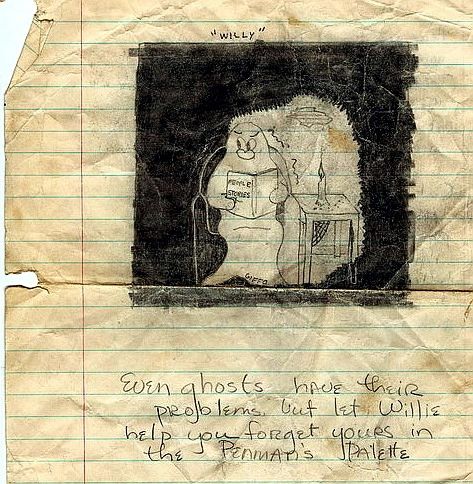 "WILLY"
PEOPLE
STORIES
Even ghosts have their
problems, but let Willie
help you forget yours in
the Penman's Palette